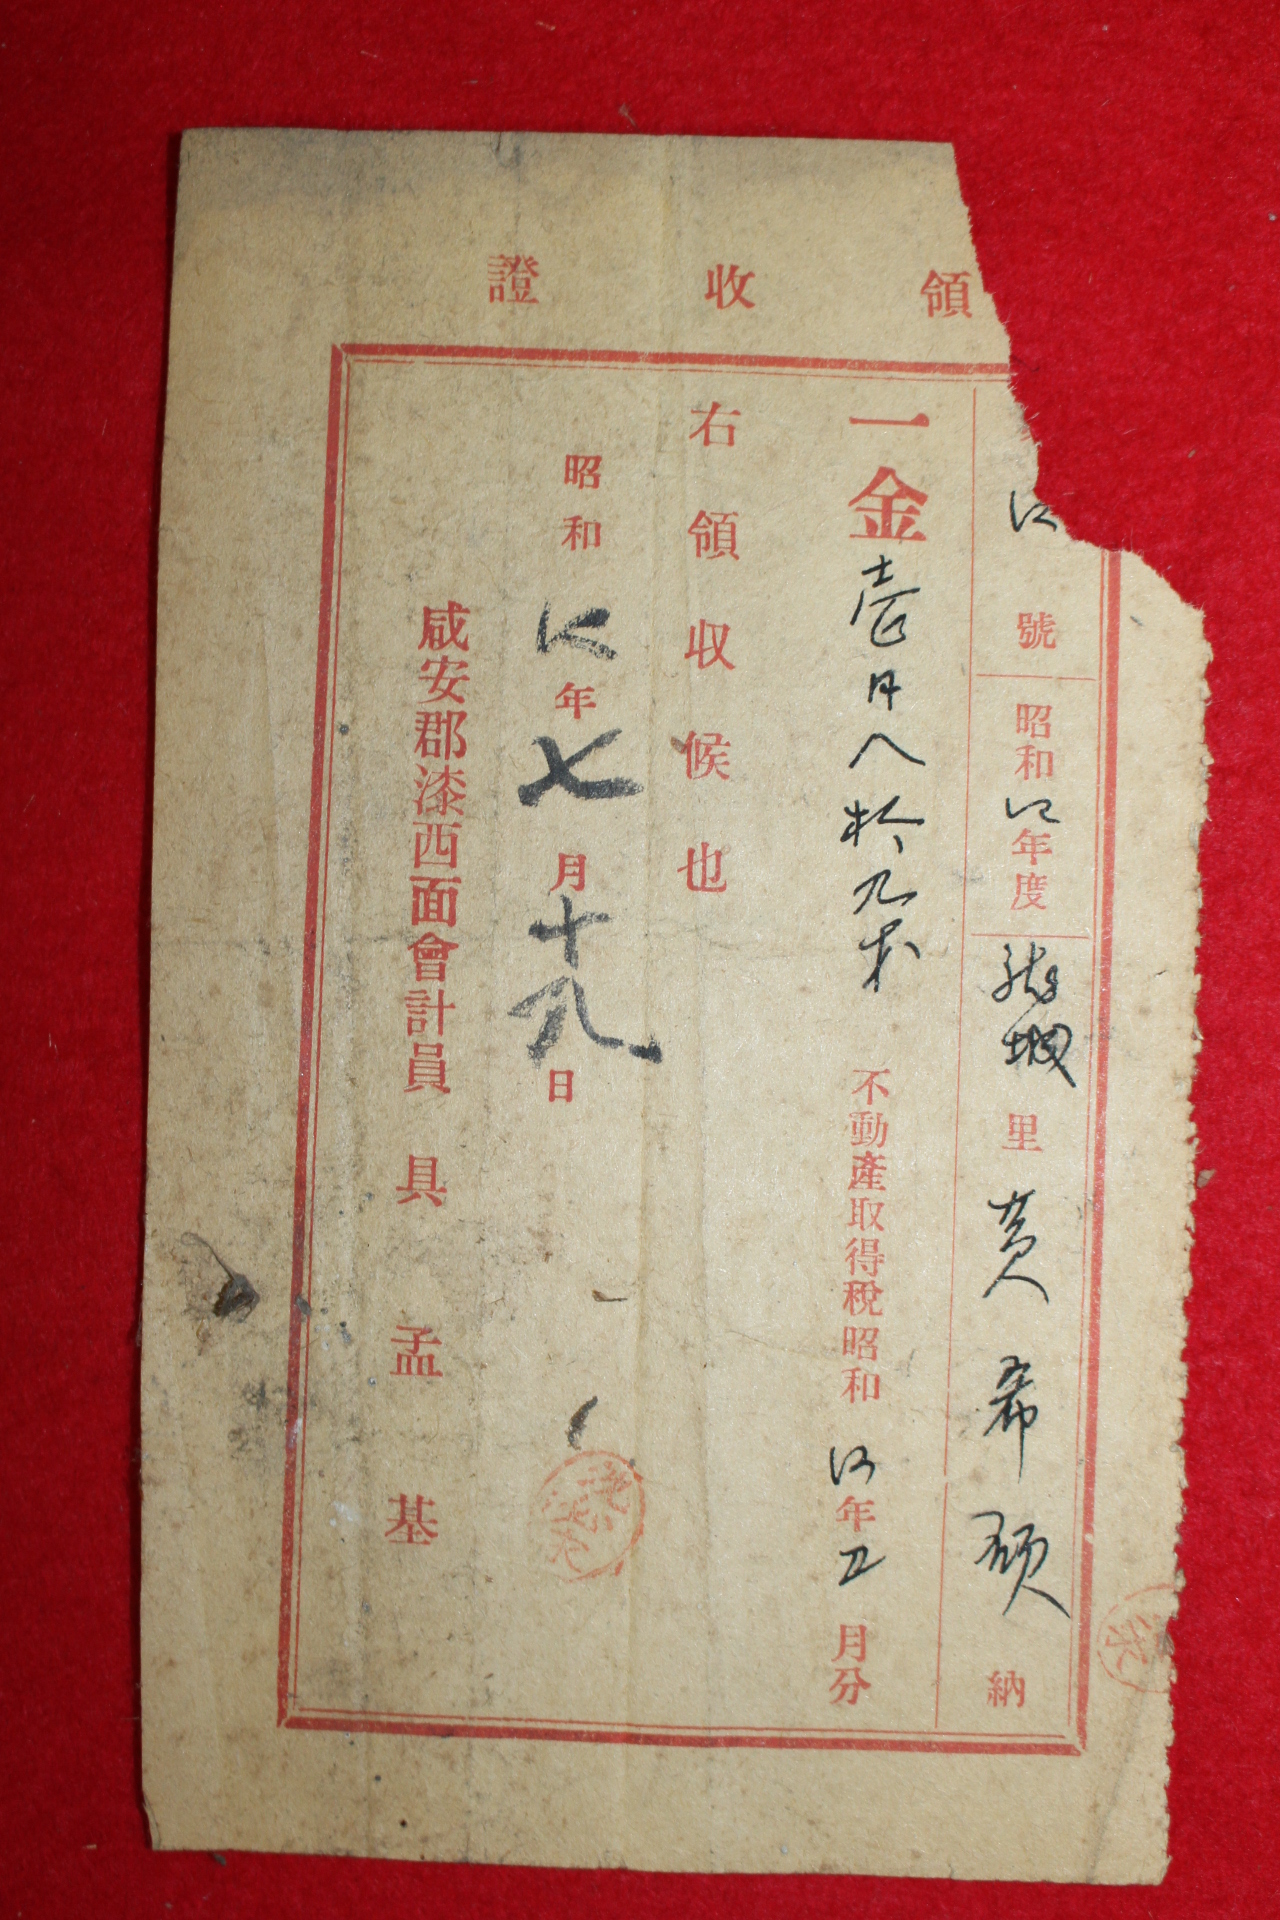 領收證
號 昭和 年度 龍城 里 黃希碩 納
一金壹円八拾九戋 不動産取得稅昭和 年五月分
右領収候也
昭和 年七月十八日
咸安郡漆西面會計員 具孟基